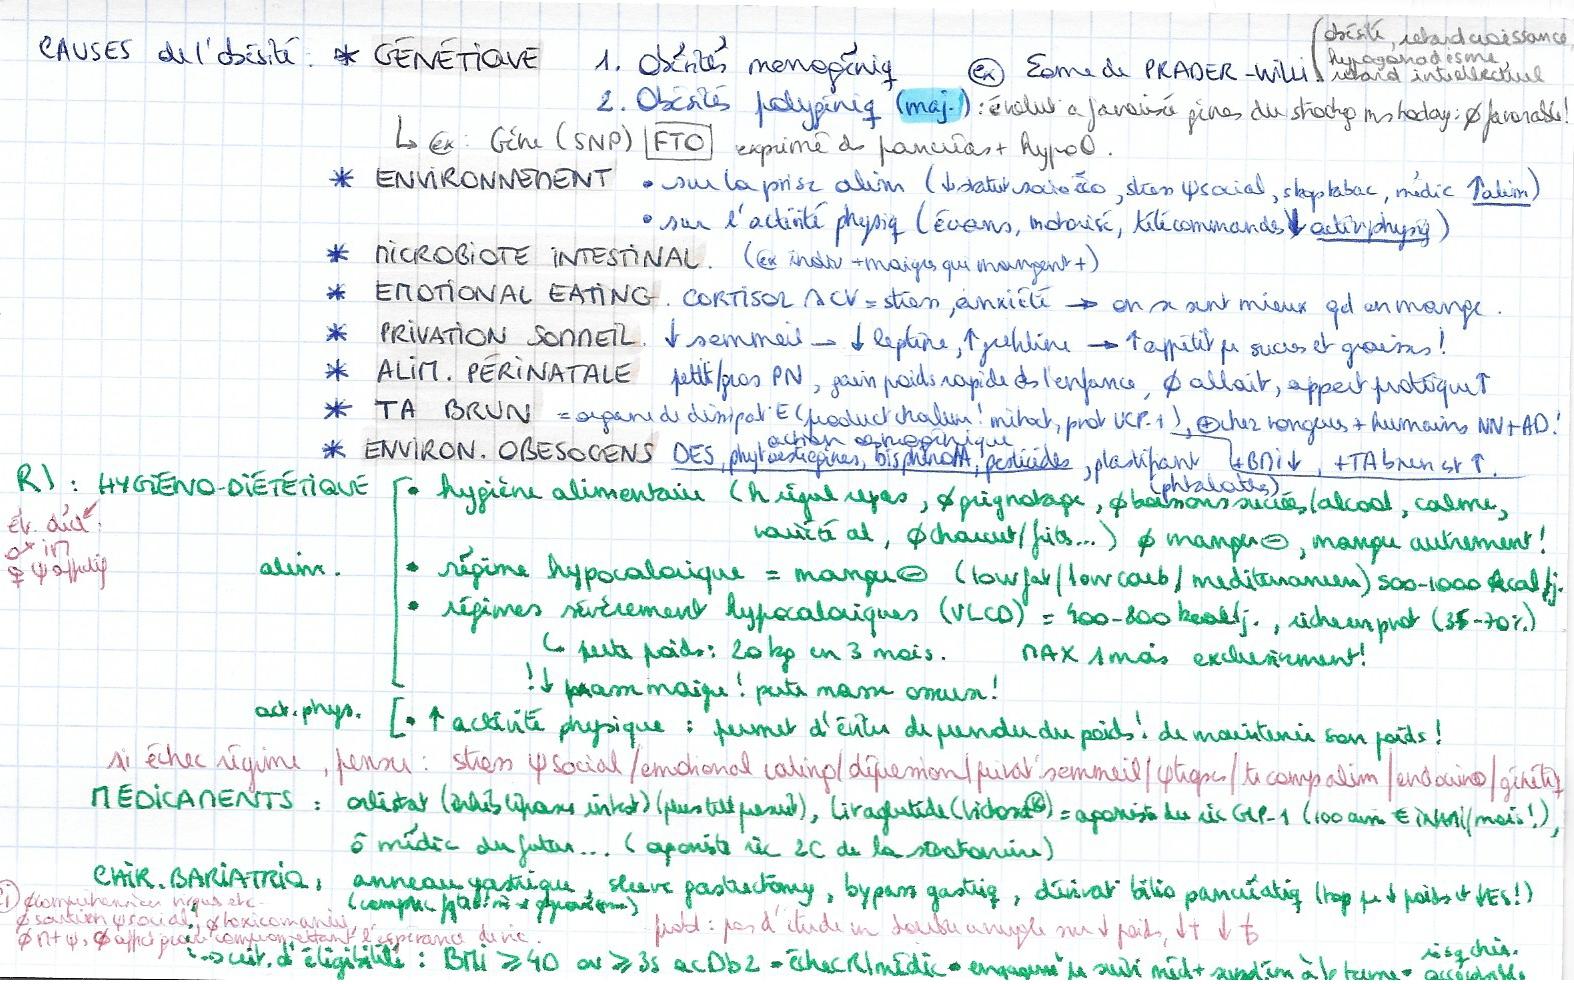 CAUSES de l'obésité : * GÉNÉTIQUE 1. Obésités monogéniq (ex) Σome de PRADER-WILLI (obésité, retard croissance, hypogonadisme, retard intellectuel
2. Obésités polygéniq (maj.) : évolut° a favorisé gènes du stockg ms today : ∅ favorable!
↳ ex : Gène (SNP) FTO exprimé ds pancréas + hypoθ.
* ENVIRONNEMENT • sur la prise alim (↓ statut socio éco, stress ψsocial, stop tabac, médic ↑alim)
• sur l'activité physiq (écrans, motorisé, télécommandes ↓ activ physiq)
* MICROBIOTE INTESTINAL. (ex indiv + maigres qui mangent +)
* EMOTIONAL EATING. CORTISOL = stress, anxiété → on se sent mieux qd on mange.
* PRIVATION SOMMEIL. ↓ sommeil → ↓ leptine, ↑ ghréline → ↑ appétit pr sucres et graisses!
* ALIM. PÉRINATALE petit/gros PN, gain poids rapide ds l'enfance, ∅ allait, apport protéique ↑
* TA BRUN = organe de dissipat° E (product° chaleur! mitoch, prot UCP-1), ⊕ chez rongeurs + humains NN + AD!
↳ + BMI ↓, + TA brun est ↑.
* ENVIRON. OBESOGENS DES, phytoestrogènes, bisphénol A, pesticides, plastifiant (phtalates)
action œstrogénique
R) : HYGIÉNO-DIÉTÉTIQUE • hygiène alimentaire (h régul repas, ∅ grignotage, ∅ boissons sucrées/alcool, calme,
variété al, ∅ charcut/frites...) ∅ manger ⊖, manger autrement!
alim. • régime hypocalorique = manger ⊖ (low fat / low carb / mediterraneen) 500-1000 kcal/j.
• régimes sévèrement hypocaloriques (VLCD) = 400-800 kcal/j., riche en prot (35-70%)
↳ perte poids : 20 kg en 3 mois. MAX 1 mois exclusivement!
!↓ masse maigre! perte masse osseuse!
act. phys. • ↑ activité physique : permet d'éviter de prendre du poids! de maintenir son poids!
si échec régime, penser : stress ψsocial / emotional eating / dépression / privat° sommeil / ψtropes / tr comp alim / endocrino / génétiq
MÉDICAMENTS : orlistat (inhib lipase intest), liraglutide (Victoza®) = agoniste du réc GLP-1 (100aine € INAMI/mois!),
ô médic du futur... (agoniste réc 2C de la sérotonine)
CHIR. BARIATRIQ : anneau gastrique, sleeve gastrectomy, bypass gastriq, dérivat° bilio pancréatiq (top pr ↓ poids et ↓ES!)
∅ compréhension risques etc.
∅ soutien ψsocial, ∅ toxicomanie
∅ affect° grave compromettant l'espérance de vie.
probl : pas d'étude en double aveugle sur ↓ poids,
↳ crit. d'éligibilité : BMI ≥ 40 ou ≥ 35 ac Db2 • échec R/médic • engagemt pr suivi méd + à lg terme • risq chir. acceptable